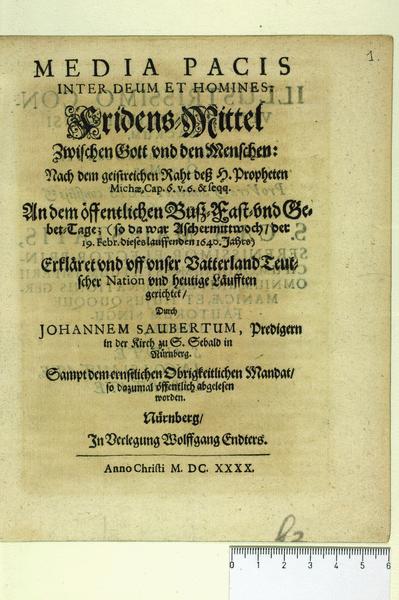 1.
MEDIA PACIS
INTER DEUM ET HOMINES:
Fridens-Mittel
Zwischen Gott vnd den Menschen:
Nach dem geistreichen Raht deß H. Propheten
Michæ, Cap. 6. v. 6. & seqq.
An dem öffentlichen Buß-Fast-vnd Ge-
bet-Tage; (so da war Aschermittwoch/ der
19. Febr. dieses lauffenden 1640. Jahrs)
Erkläret vnd vff vnser Vatterland Teut-
scher Nation vnd heutige Läufften
gerichtet/
Durch
JOHANNEM SAUBERTUM, Predigern
in der Kirch zu S. Sebald in
Nürnberg.
Sampt dem ernstlichen Obrigkeitlichen Mandat/
so dazumal öffentlich abgelesen
worden.
Nürnberg/
In Verlegung Wolffgang Endters.
Anno Christi M. DC. XXXX.
0 1 2 3 4 5 6